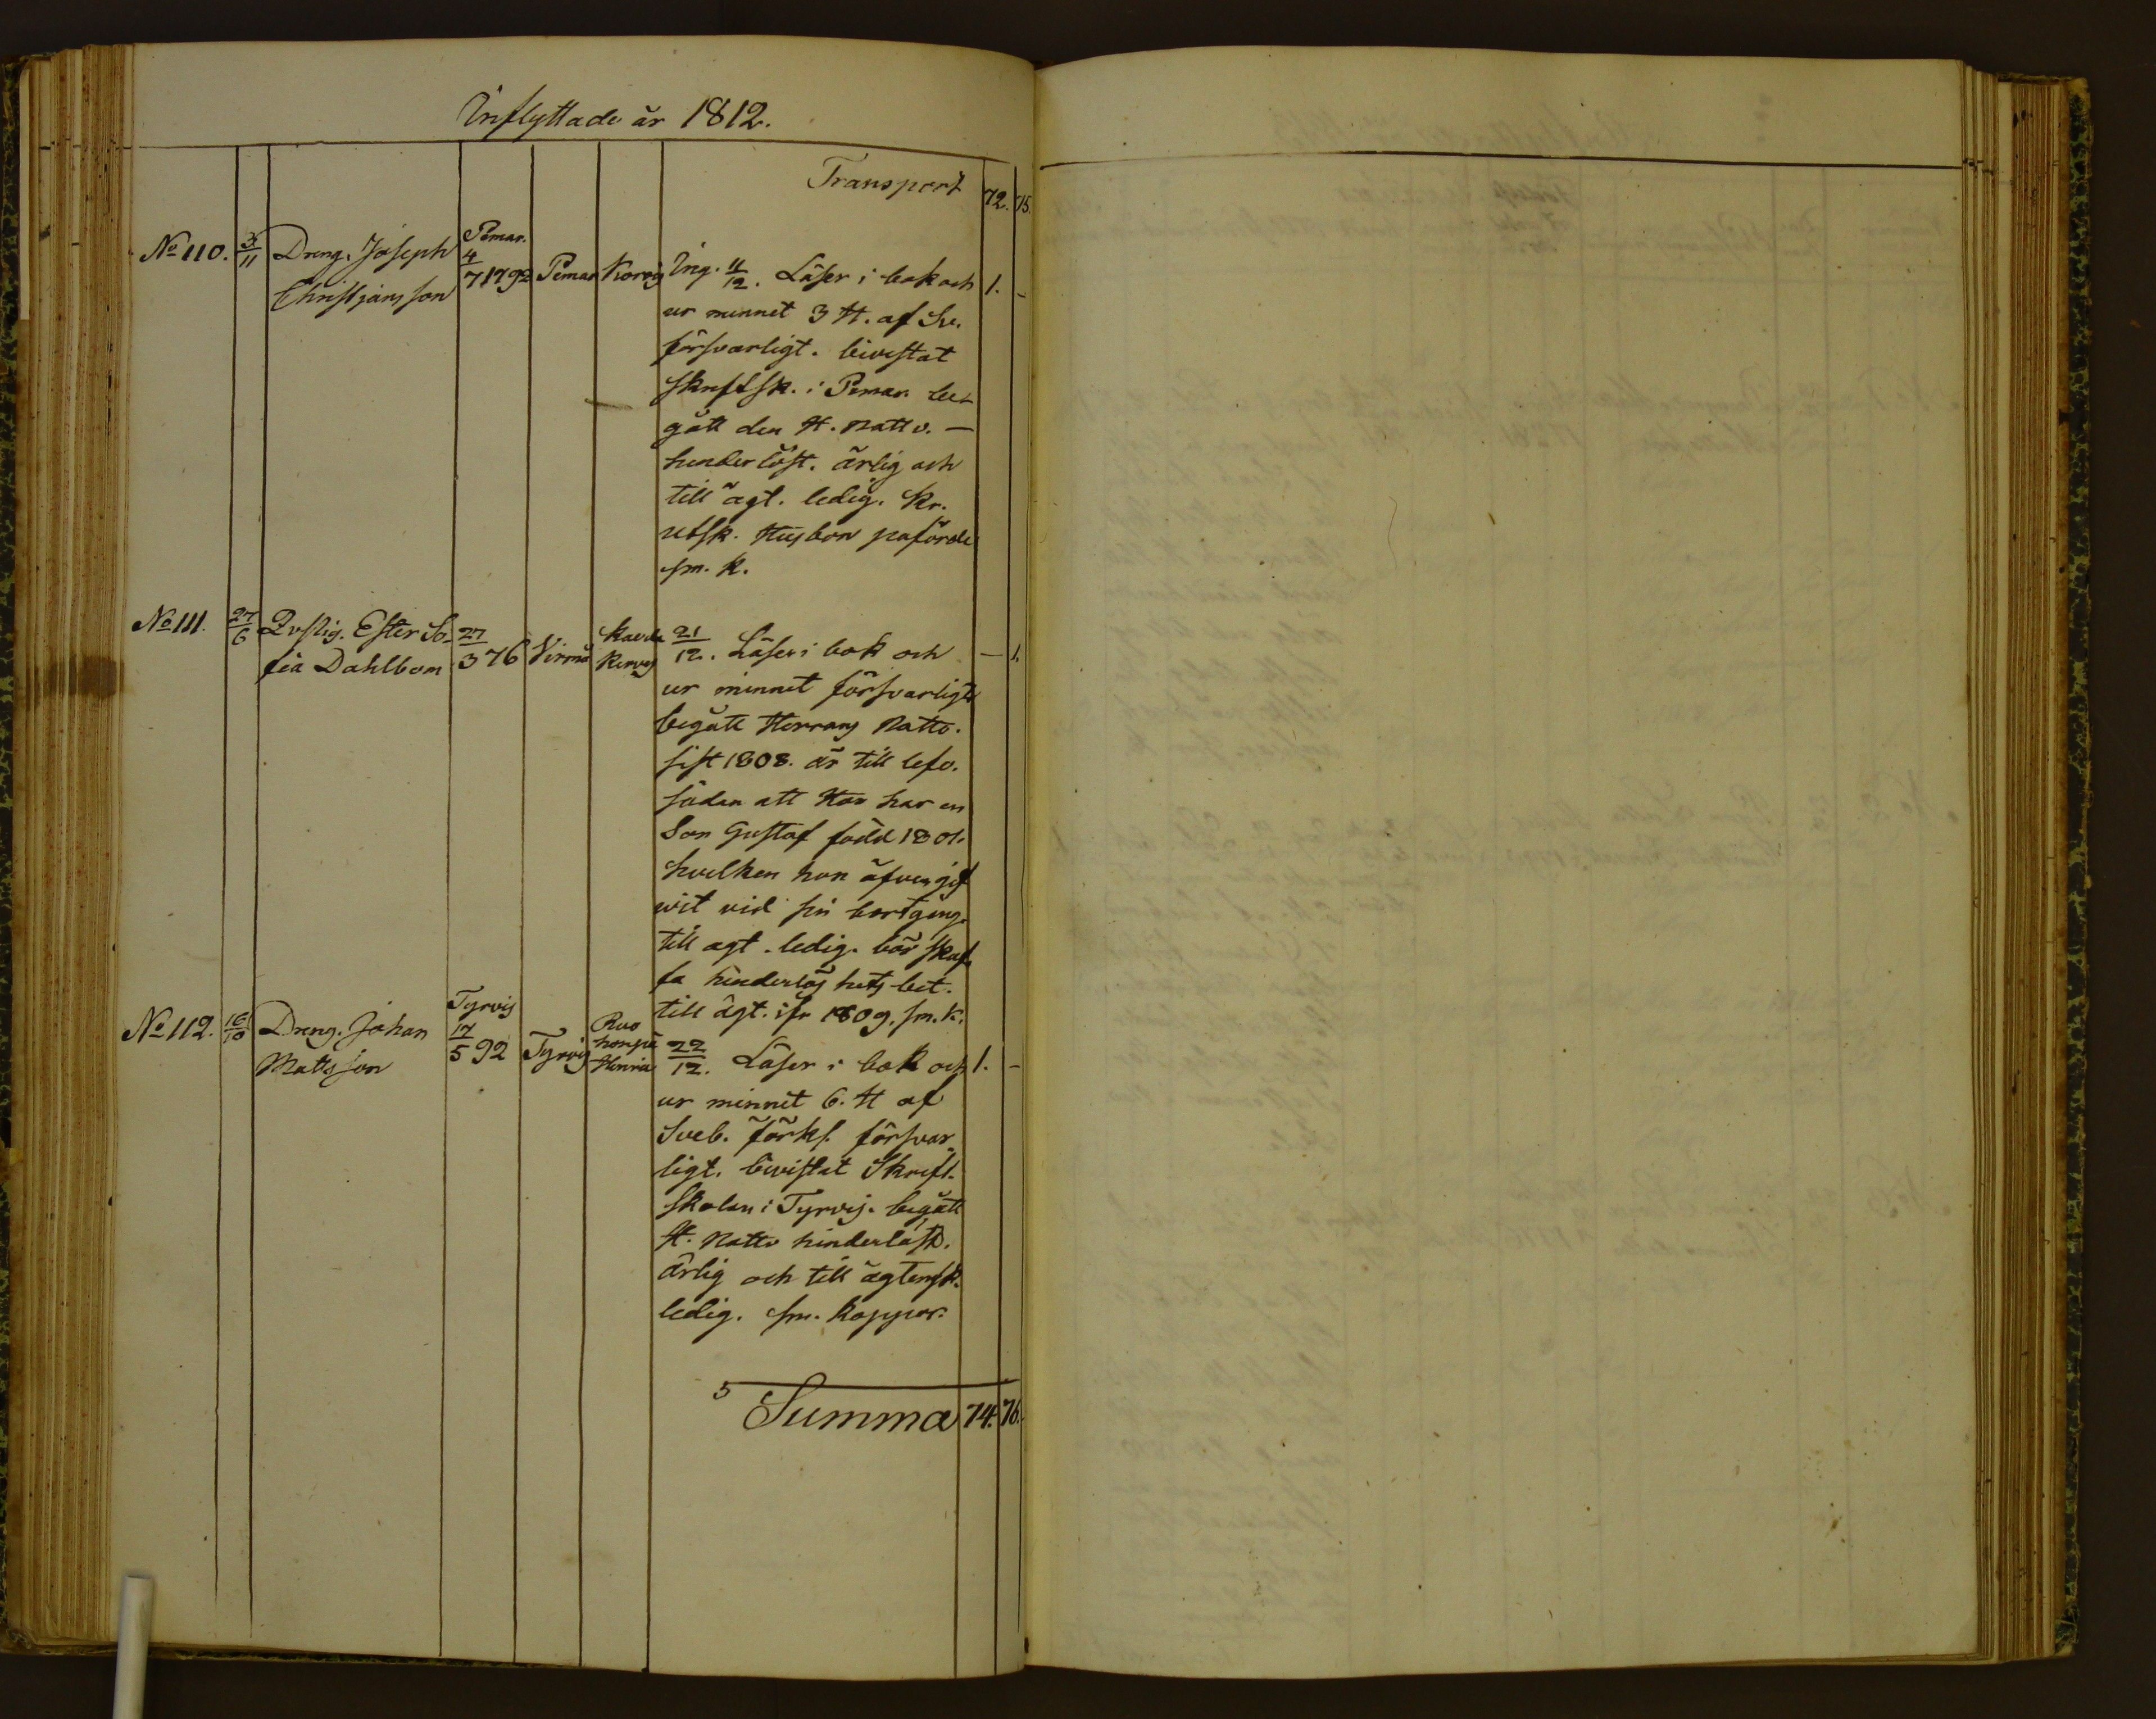 Inflyttade år 1812.
Transport 72. 75.
No 110. 3/11 Dreng. Joseph Christjansson Pemar. 4/7 1792 Pemar Korois Ing. 11/12. Läser i bok och 1. -
ur minnet 3 H. af Sv.
försvarligt. bivistat
Skriftsk. i Pemar. be-
gått den H. Nattv. —
hinderlöst. ärlig och
till ägt. ledig. Kr.
utsk. Husbon påförde
sm. k.
No 111. 27/6 Ester So-
fia Dahlbom 27/3 76 Virmo 21/12. Läser i bok och — 1.
ur minnet försvarligt
begått Herrans Nattv.
sist 1808. är till lefv.
sådan att Hon har en
Son Gustaf född 1801.
hvilken hon öfvergif
wit vid sin bortgång.
till ägt. ledig. bör skaf-
fa hinderlöshets bet.
till ägt. ifr 1809. sm. k.
No 112. 16/10 Dreng. Johan
Mattsson Tyrvis 17/5 92 Tyrvis 22/12. Läser i bok och 1. -
ur minnet 6. H af
Sveb. förkl. försvar-
ligt. bivistat Skrift-
skolan i Tyrvis. begått
H. Nattv hinderlöst.
ärlig och till ägtensk.
ledig. sm. koppor.
5
Summa 74. 76.